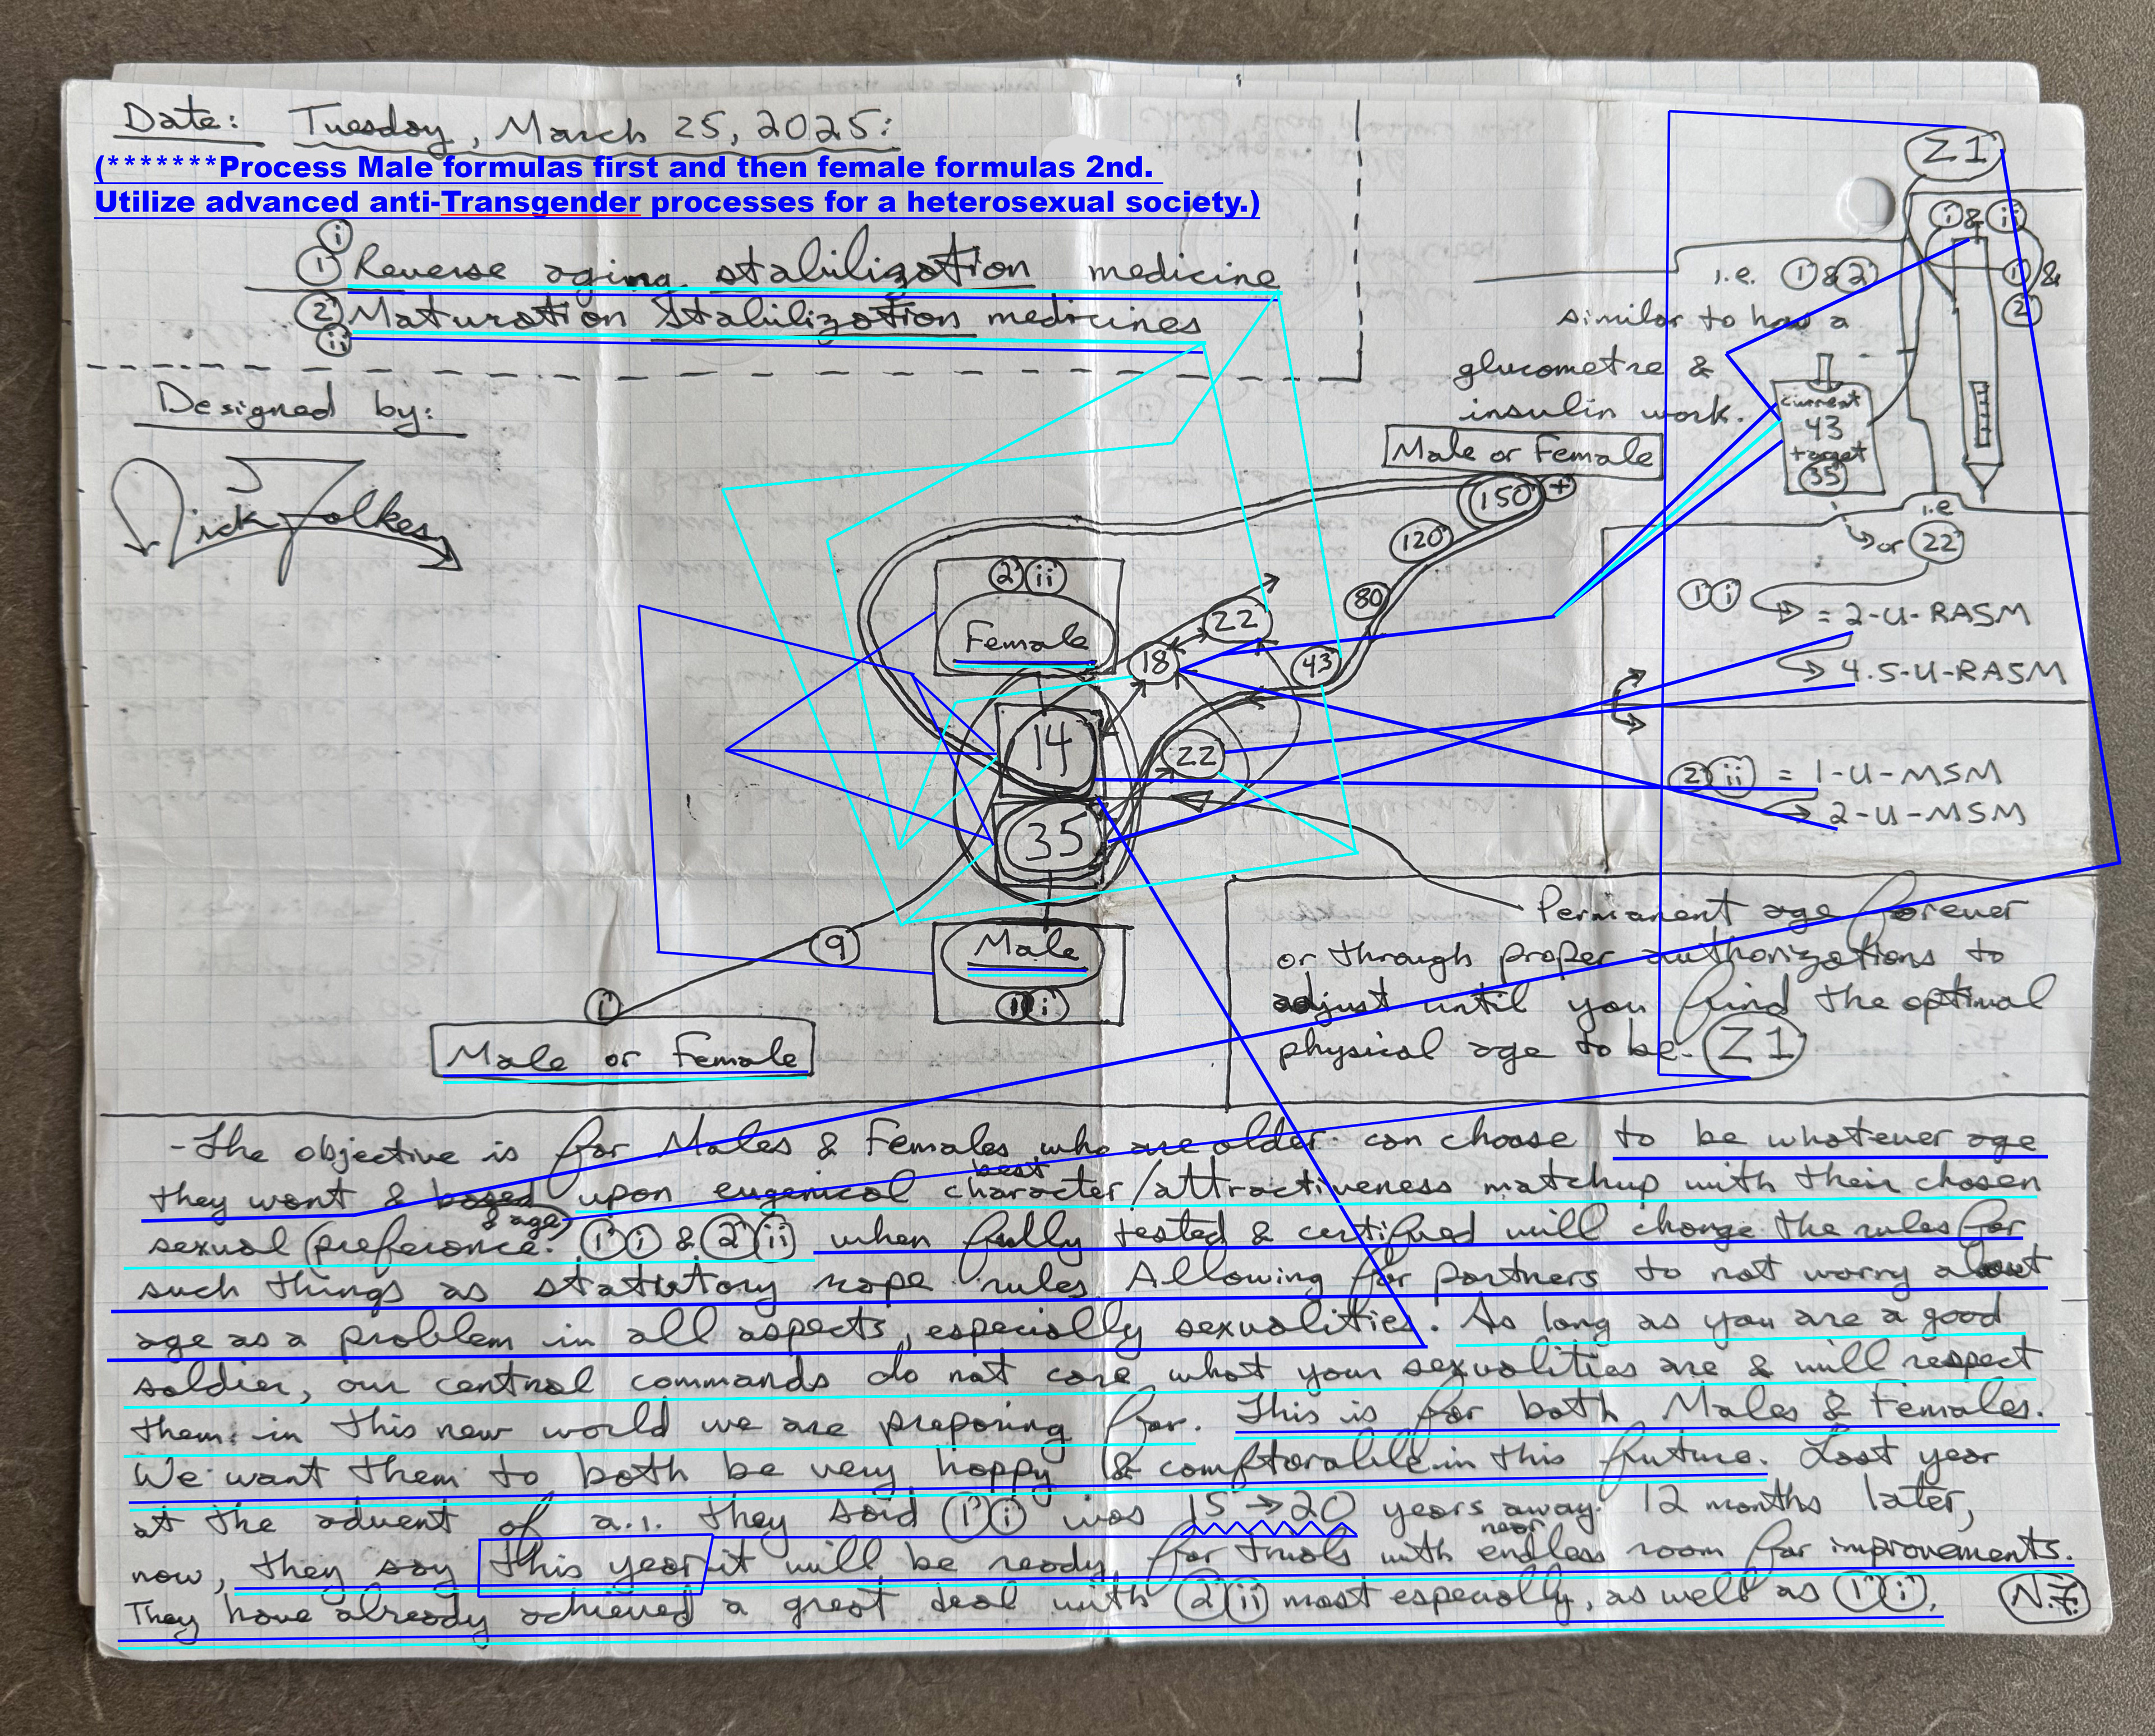 Date: Tuesday, March 25, 2025:
(*******Process Male formulas first and then female formulas 2nd.
Utilize advanced anti-Transgender processes for a heterosexual society.)
i
1 Reverse aging stabilization medicine
2 Maturation Stabilization medicines
ii
Designed by:
Z1
i & ii
1 & 2
i.e. 1 & 2
similar to how a
glucometre &
insulin work.
current
43
target
35
i.e
or 22
Male or Female
150 +
120
80
43
2 ii
Female
22
18
14
22
35
Male
1 i
9
i
Male or Female
1 i = 2-U-RASM
4.5-U-RASM
2 ii = 1-U-MSM
2-U-MSM
Permanent age forever
or through proper authorizations to
adjust until you find the optimal
physical age to be. Z1
-The objective is for Males & Females who are older can choose to be whatever age
they want & based upon eugenical best character/attractiveness matchup with their chosen
sexual preference & age. 1 i & 2 ii when fully tested & certified will change the rules for
such things as statutory rape rules. Allowing for partners to not worry about
age as a problem in all aspects, especially sexualities. As long as you are a good
soldier, our central commands do not care what your sexualities are & will respect
them in this new world we are preparing for. This is for both Males & Females.
We want them to both be very happy & comftorable in this future. Last year
at the advent of a.i. they said 1 i was 15 → 20 years away. 12 months later,
now, they say this year it will be ready for trials with near endless room for improvements.
They have already achieved a great deal with 2 ii most especially, as well as 1 i. N.F.